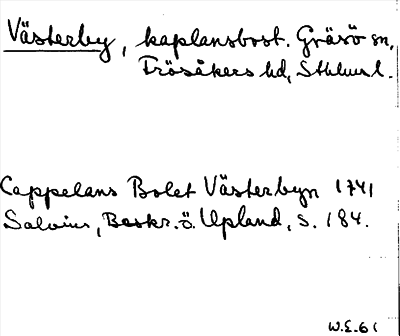 Västerby, kaplansbost. Gräsö sn,
Frösåkers hd, Sthlms l.
Cappelans Bolet Västerbyn 1741
Salvius, Beskr. ö. Upland, s. 184.
W.E-61